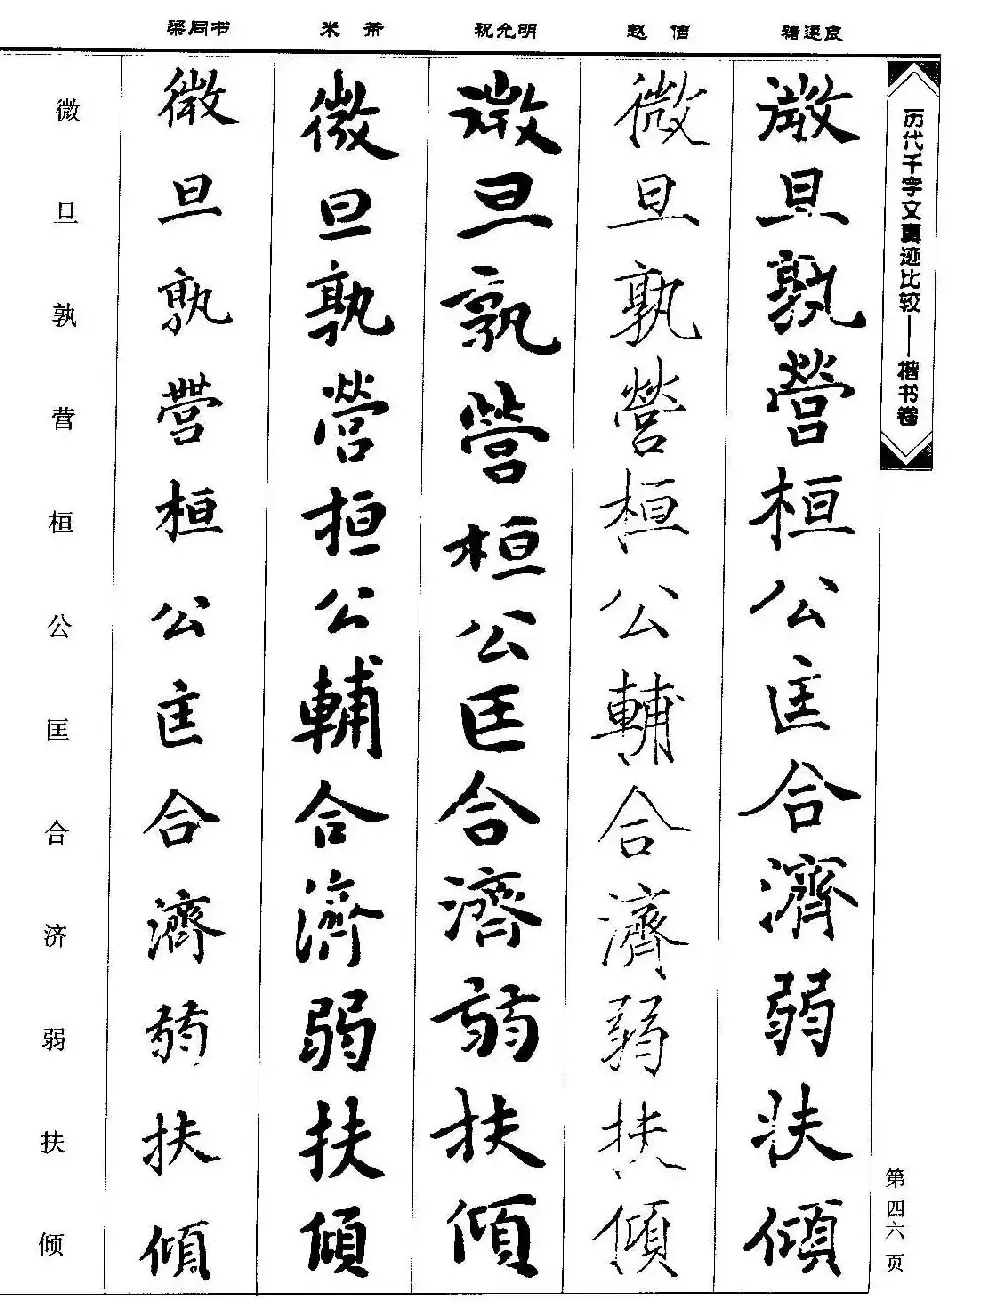 历代千字文真迹比较——楷书卷
第四六页
褚遂良
微旦孰營桓公匡合濟弱扶傾
赵佶
微旦孰營桓公輔合濟弱扶傾
祝允明
微旦孰營桓公匡合濟弱扶傾
米芾
微旦孰營桓公輔合濟弱扶傾
梁同书
微旦孰營桓公匡合濟弱扶傾
微旦孰营桓公匡合济弱扶倾